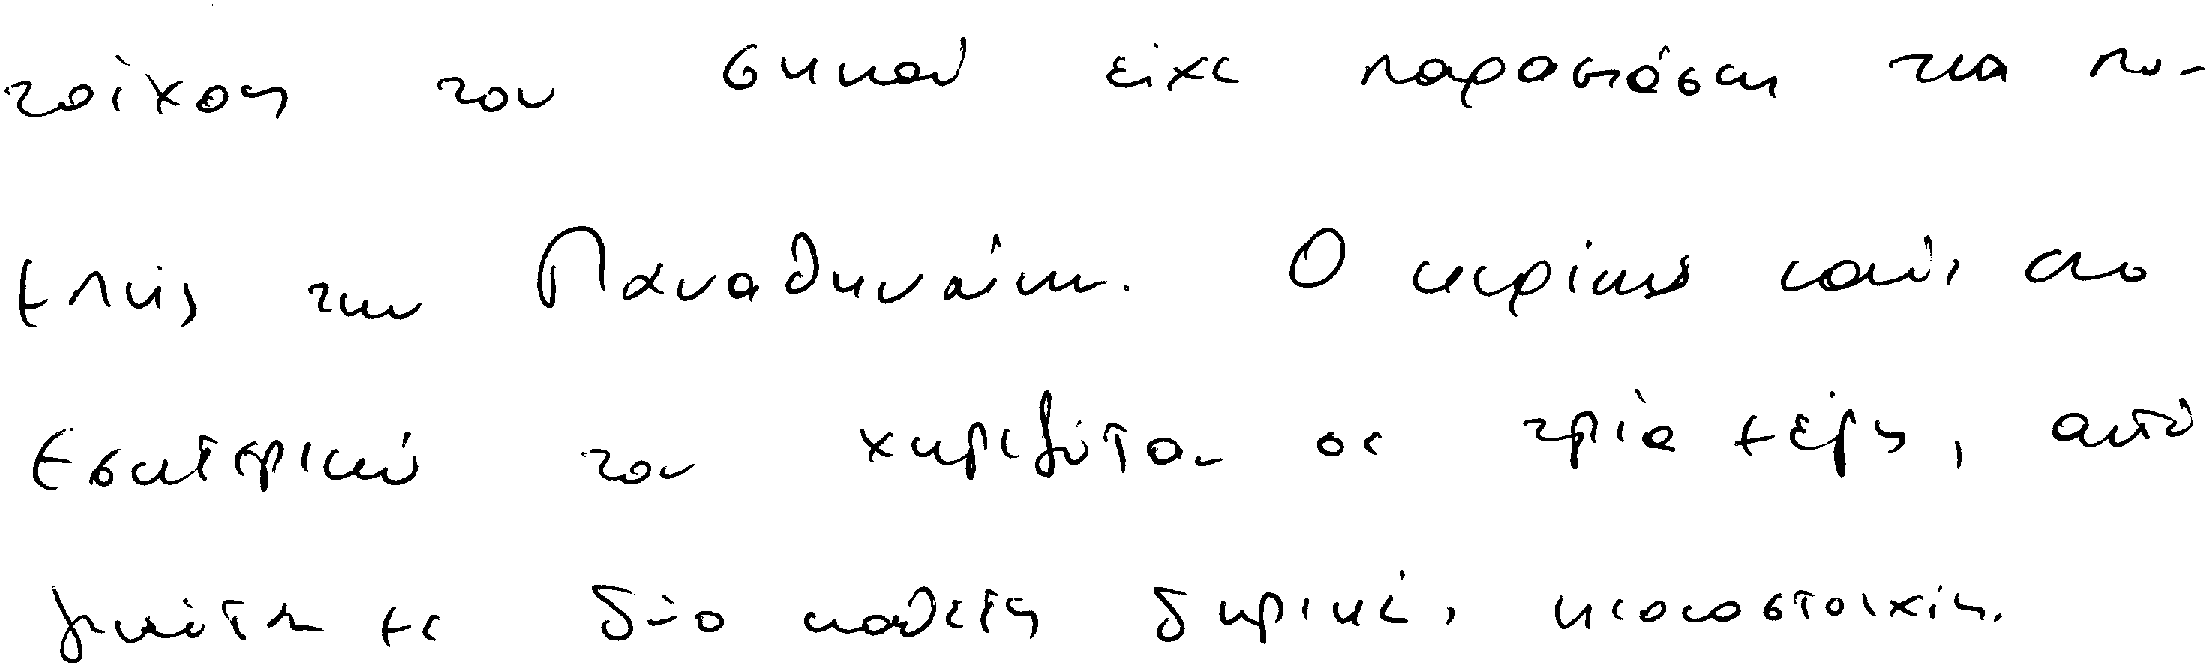 τοίχους του σηκού είχε παραστάσεις για πο-
μπής των Παναθηναίων. Ο κυρίως ναός στο
εσωτερικό του χωριζόταν σε τρία μέρη, αυτό
γινόταν με δύο κάθετες δωρικές κιονοστοιχίες.